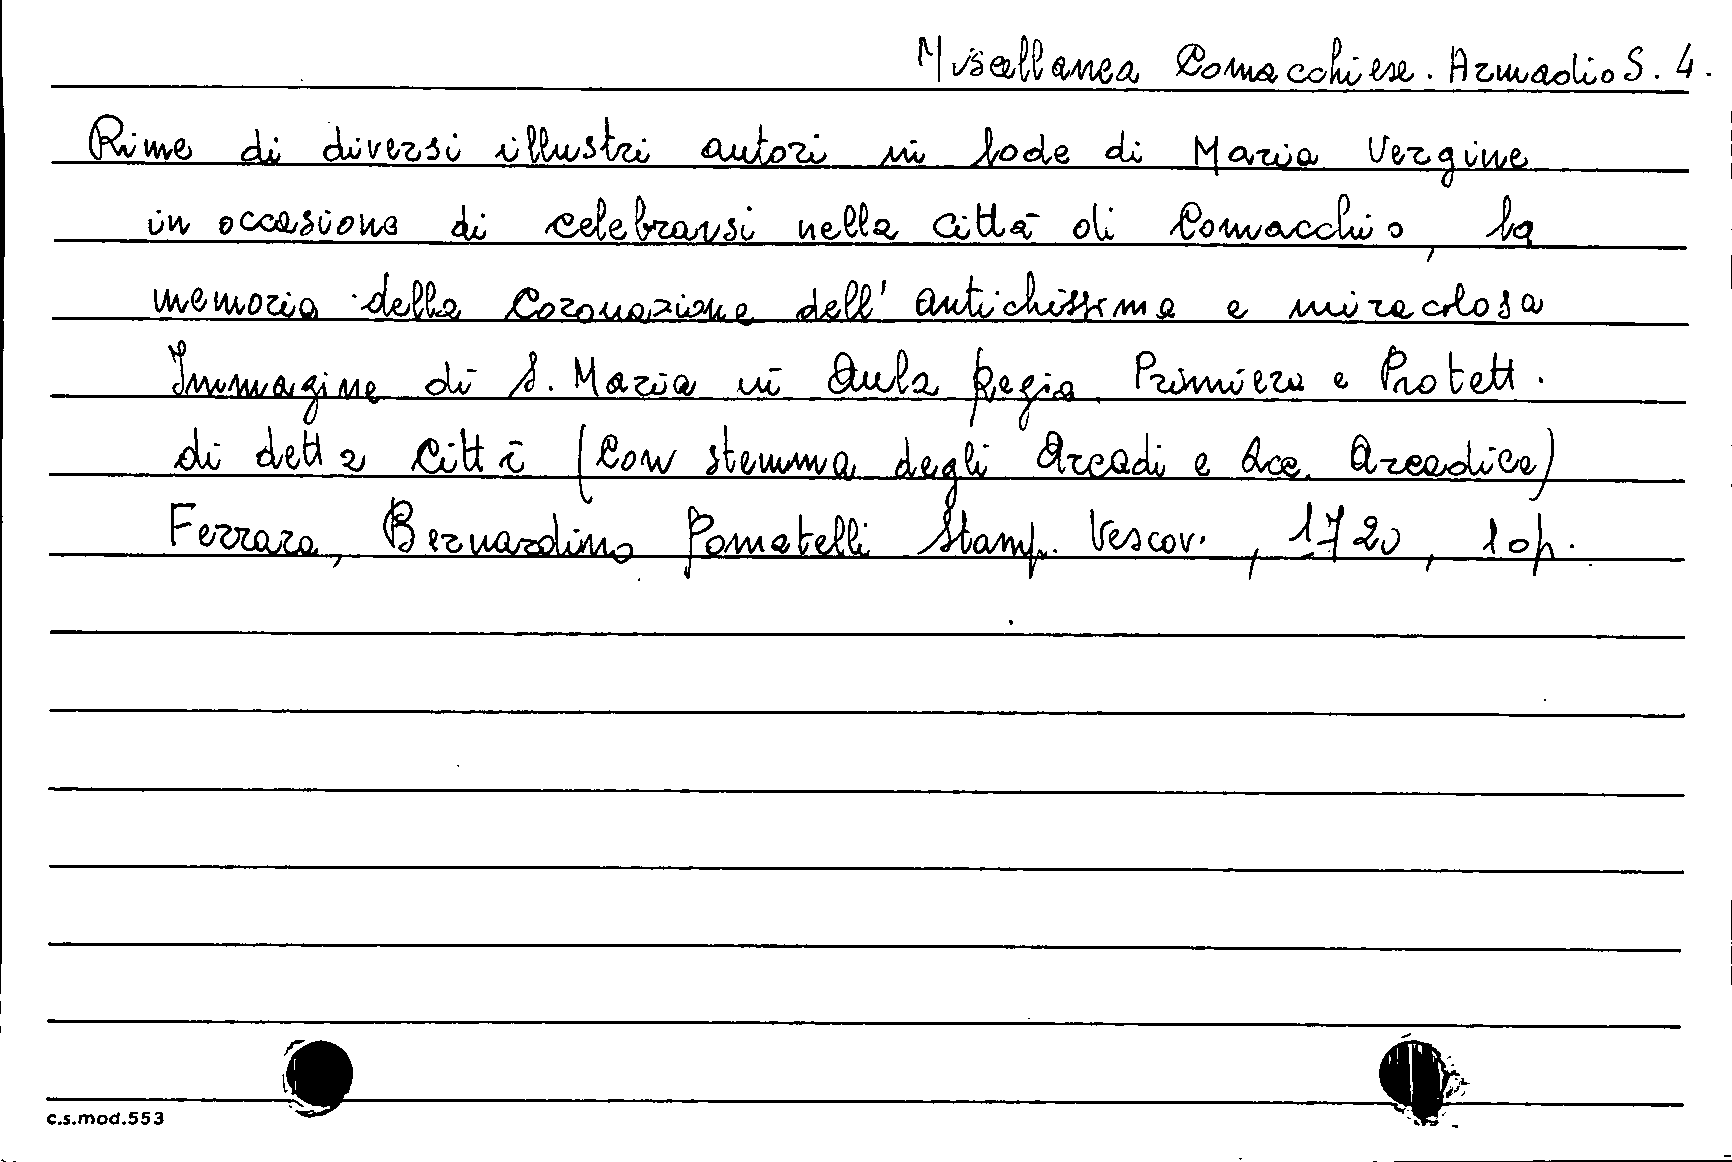 Miscellanea Comacchiese. Armadio S. 4.
Rime di diversi illustri autori in lode di Maria Vergine
in occasione di celebrarsi nella città di Comacchio, la
memoria della Coronazione dell' antichissima e miracolosa
Immagine di S. Maria in Aula Regia. Primiera e Protett.
di detta Città (Con stemma degli Arcadi e Acc. Arcadica)
Ferrara, Bernardino Pomatelli Stamp. Vescov., 1720, 10p.
c.s.mod.553